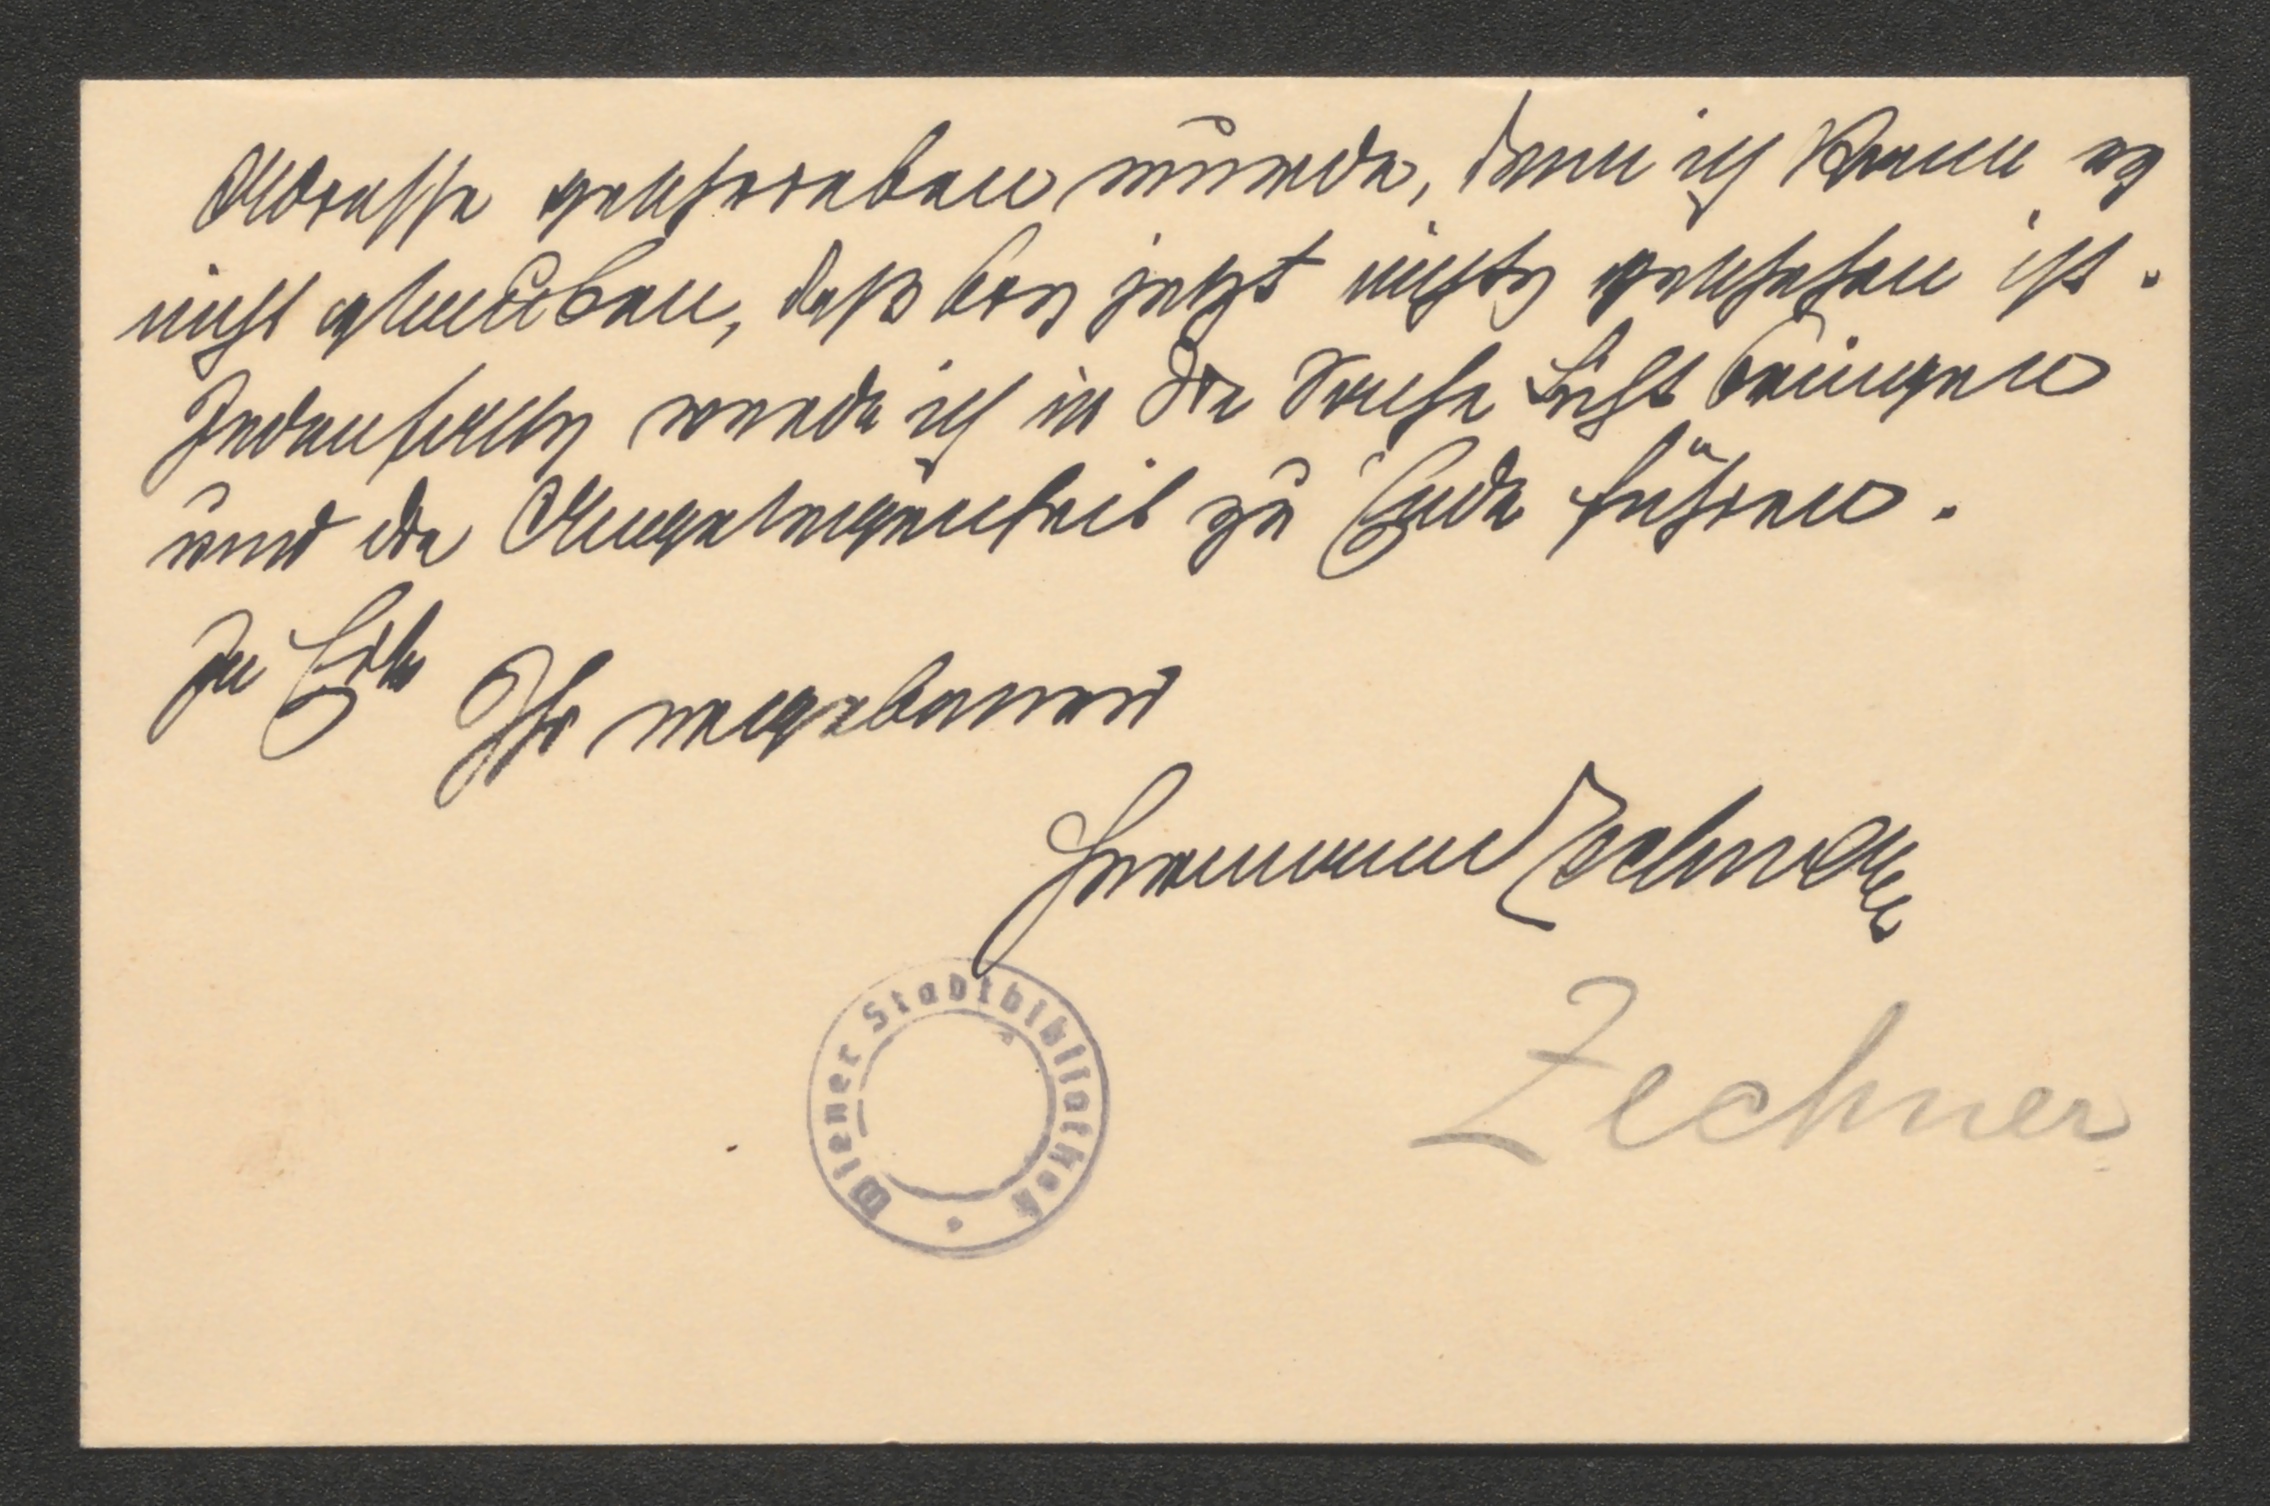 Adresse geschrieben wurde, denn ich kann es
nicht glauben, daß bis jetzt nichts geschehen ist.
Jedenfalls werde ich in die Sache Licht bringen
und die Angelegenheit zu Ende führen.
In Eile
Ihr ergebener
Hermann Zechner
Wiener Stadtbibliothek
Zechner